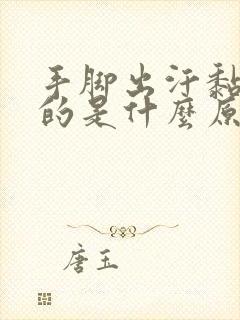 手脚出汗黏
的是什麼原
唐玉